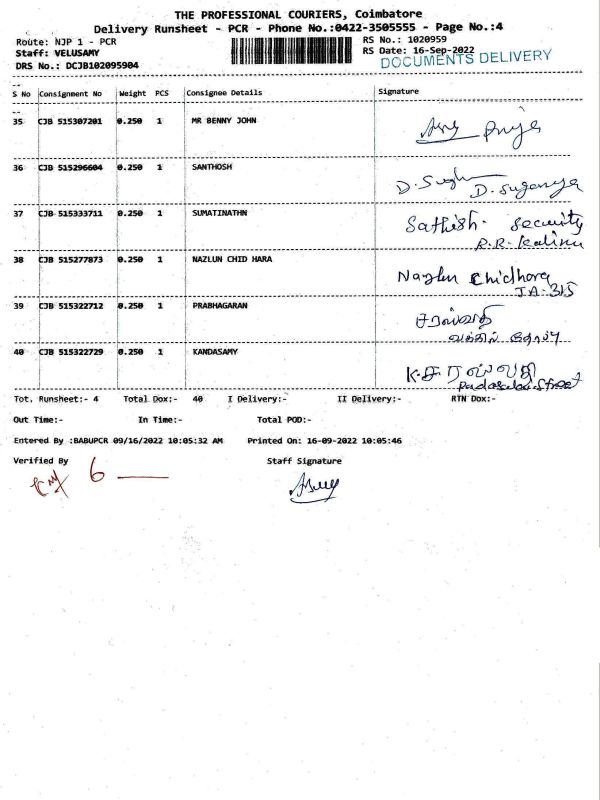 THE PROFESSIONAL COURIERS, Coimbatore
Delivery Runsheet - PCR - Phone No.:0422-3505555 - Page No.:4
Route: NJP 1 - PCR
RS No.: 1020959
Staff: VELUSAMY
RS Date: 16-Sep-2022
DRS No.: DCJB102095904
DOCUMENTS DELIVERY
S No Consignment No Weight PCS Consignee Details Signature
35 CJB 515307201 0.250 1 MR BENNY JOHN
Priya
36 CJB 515296604 0.250 1 SANTHOSH
D. Suganya
37 CJB 515333711 0.250 1 SUMATINATHN Sathish. Security
38 CJB 515277873 0.250 1 NAZLUN CHID HARA Nazlun Chidhara
JA-315
39 CJB 515322712 0.250 1 PRABHAGARAN சரஸ்வதி
40 CJB 515322729 0.250 1 KANDASAMY K.சரஸ்வதி
Street
Tot. Runsheet:- 4 Total Dox:- 40 I Delivery:- II Delivery:- RTN Dox:-
Out Time:- In Time:- Total POD:-
Entered By :BABUPCR 09/16/2022 10:05:32 AM Printed On: 16-09-2022 10:05:46
Verified By Staff Signature
6 —